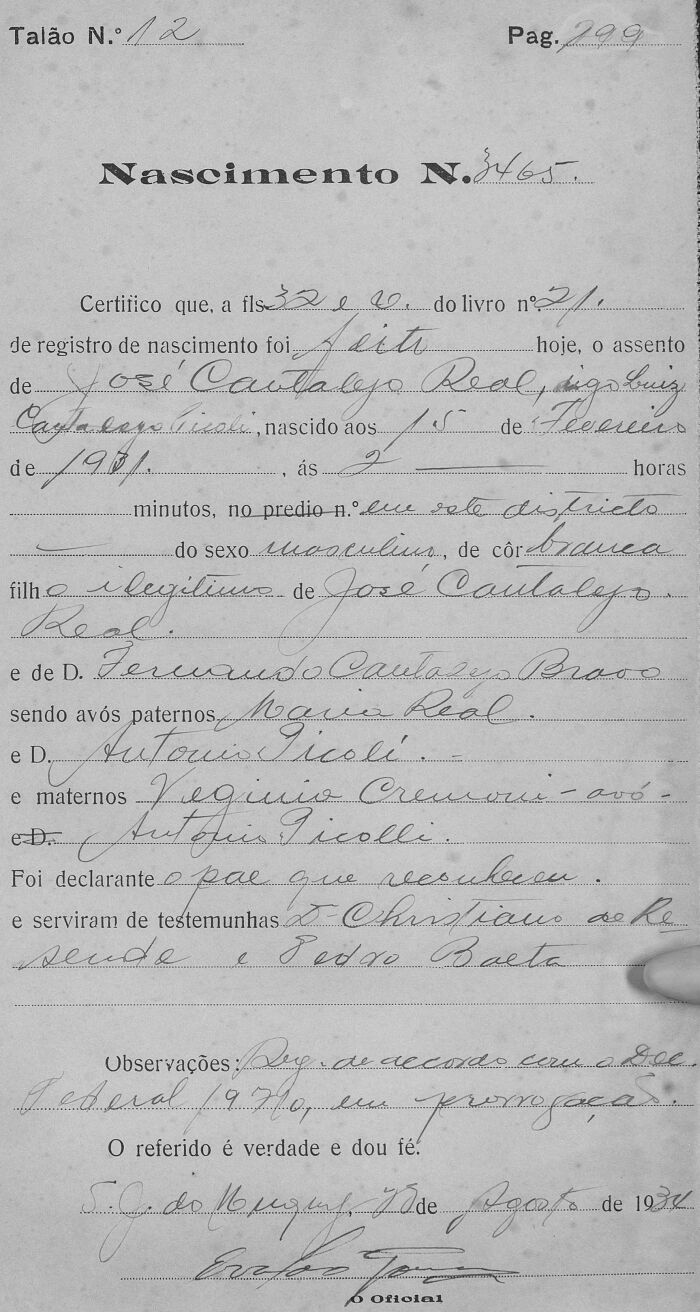 Talão N.º 12 Pag. 299
Nascimento N. 3465.
Certifico que, a fls 32 e v. do livro nº 21.
de registro de nascimento foi feito hoje, o assento
de José Cantalejo Real, digo Luiz
Cantalejo Picoli, nascido aos 15 de Fevereiro
de 1931. , ás 2 horas
minutos, no predio n.º em este districto
do sexo masculino, de côr branca
filho ilegitimo de José Cantalejo
Real.
e de D. Fernando Cantalejo Bravo
sendo avós paternos Maria Real.
e D. Antonio Picoli.
e maternos Veginio Cremoni - avó -
e D. Antonio Picolli.
Foi declarante o pae que reconheceu.
e serviram de testemunhas Dr Christiano de Re
sende e Pedro Baeta
Observações: Reg. de accordo com o Dec.
Federal 19710, em prorrogação.
O referido é verdade e dou fé.
S. J. do de Agosto de 1934
O Oficial